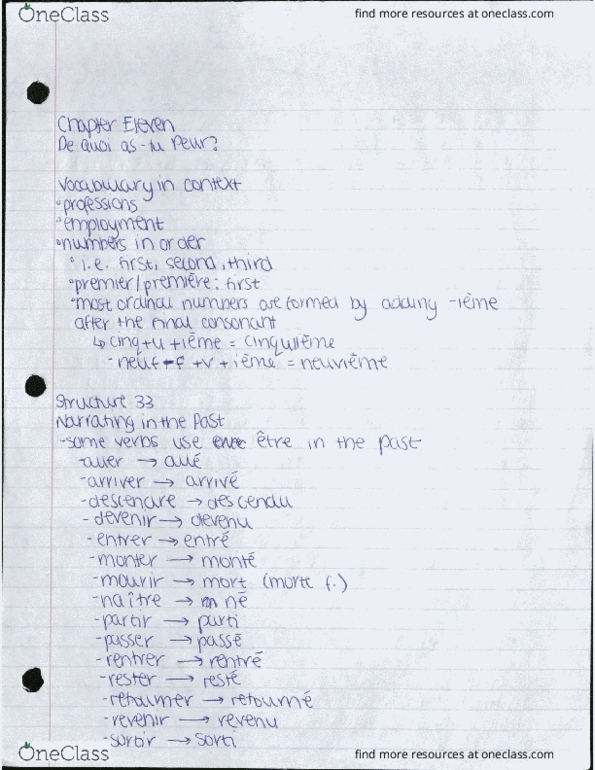 OneClass
find more resources at oneclass.com
Chapter Eleven
De quoi as-tu Peur?
Vocabulary in context
°professions
°employment
°numbers in order
° i.e. first, second, third
°premier/première: first
°most ordinal numbers are formed by adding -ième
after the final consonant
↳ cinq+u+ième = cinquième
- neuf - f + v + ième = neuvième
Structure 33
Narrating in the Past
-some verbs use être in the past
-aller → allé
-arriver → arrivé
-descendre → descendu
-devenir → devenu
-entrer → entré
-monter → monté
-mourir → mort (morte f.)
-naître → né
-partir → parti
-passer → passé
-rentrer → rentré
-rester → resté
-retourner → retourné
-revenir → revenu
-sortir → sorti
OneClass
find more resources at oneclass.com